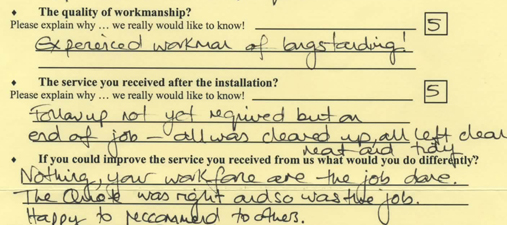 ♦ The quality of workmanship? 5
Please explain why ... we really would like to know!
Expereiced workman of longstanding!
♦ The service you received after the installation? 5
Please explain why ... we really would like to know!
Followup not yet required but on
end of job – all was cleared up, all left clean
neat and tidy
♦ If you could improve the service you received from us what would you do differently?
Nothing, your workforce are the job done.
The Quote was right and so was the job.
Happy to reccommend to others.